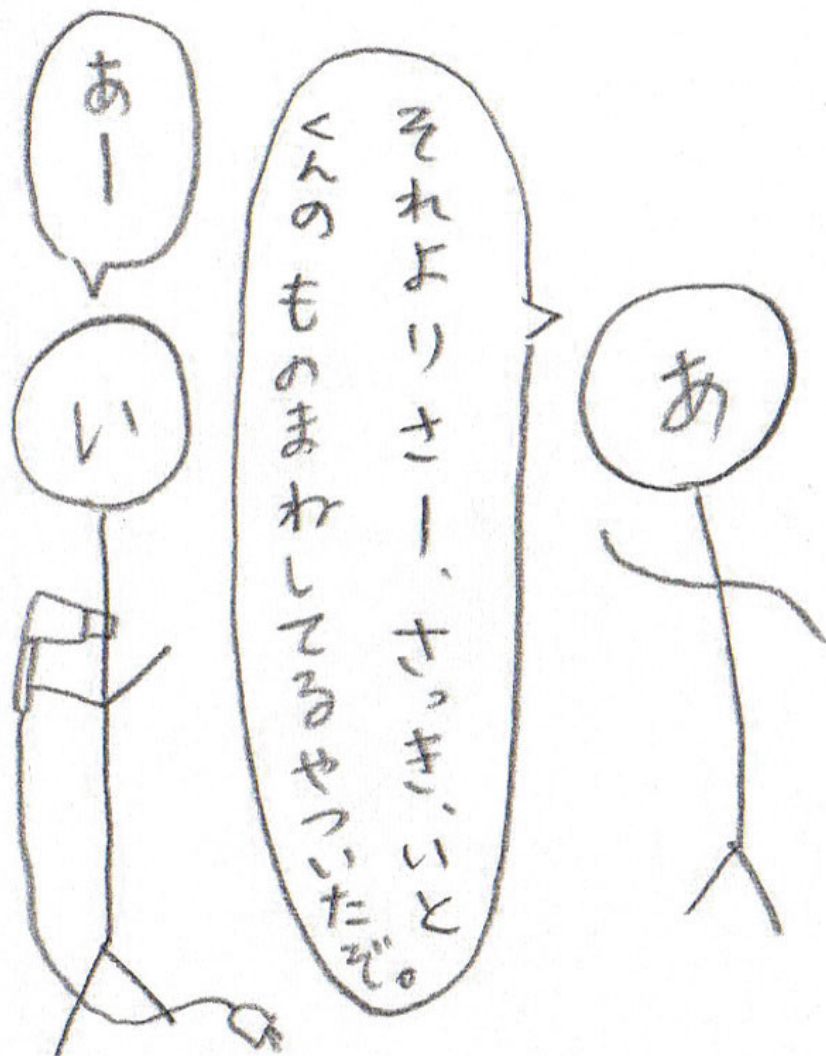 あ
それよりさー、さっき、いと
くんのものまねしてるやついたぞ。
あー
い